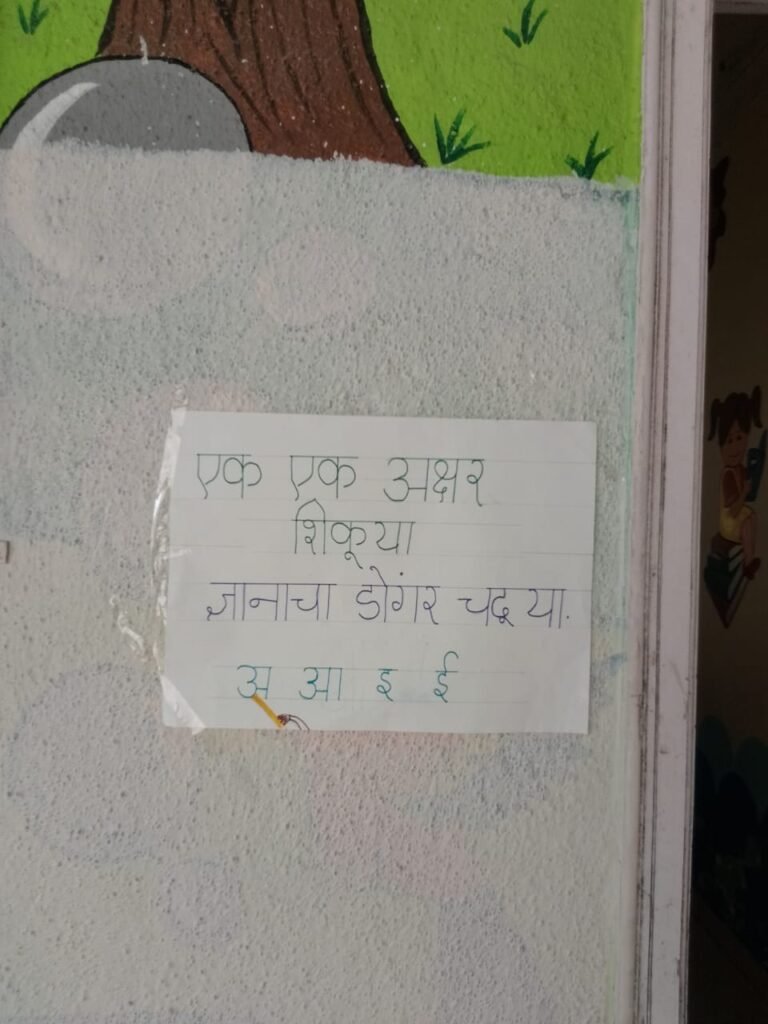 एक एक अक्षर
शिकूया
ज्ञानाचा डोंगर चढूया.
अ आ इ ई